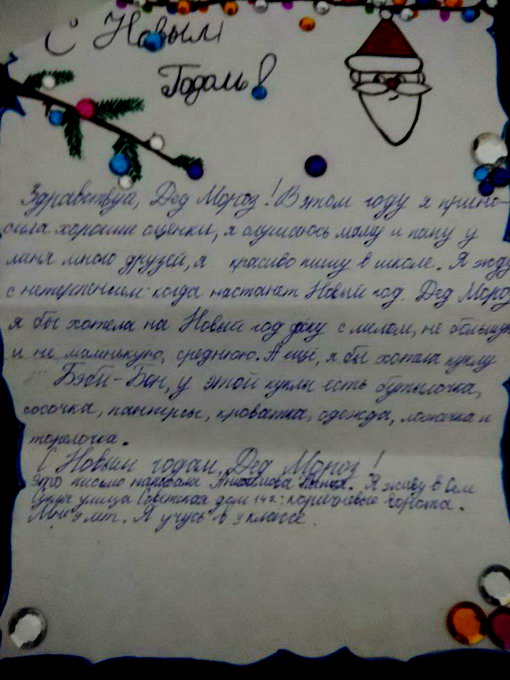 С Новым
Годом!
Здравствуй, Дед Мороз! В этом году я прино-
сила хорошие оценки, я слушаюсь маму и папу у
меня много друзей, я красиво пишу в школе. Я жду
с нетерпением когда настанет Новый год. Дед Мороз
я бы хотела на Новый год доску с мелом, не большую
и не маленькую, среднюю. А ещё, я бы хотела куклу
Бэби-Бон, у этой куклы есть бутылочка,
сосочка, памперсы, кроватка, одежда, ложечка и
торелочка.
С Новым годом, Дед Мороз!
Это письмо написала Я живу в Сем
улица Советская дом коричневые ворота.
Мне 9 лет. Я учусь в 3 классе.